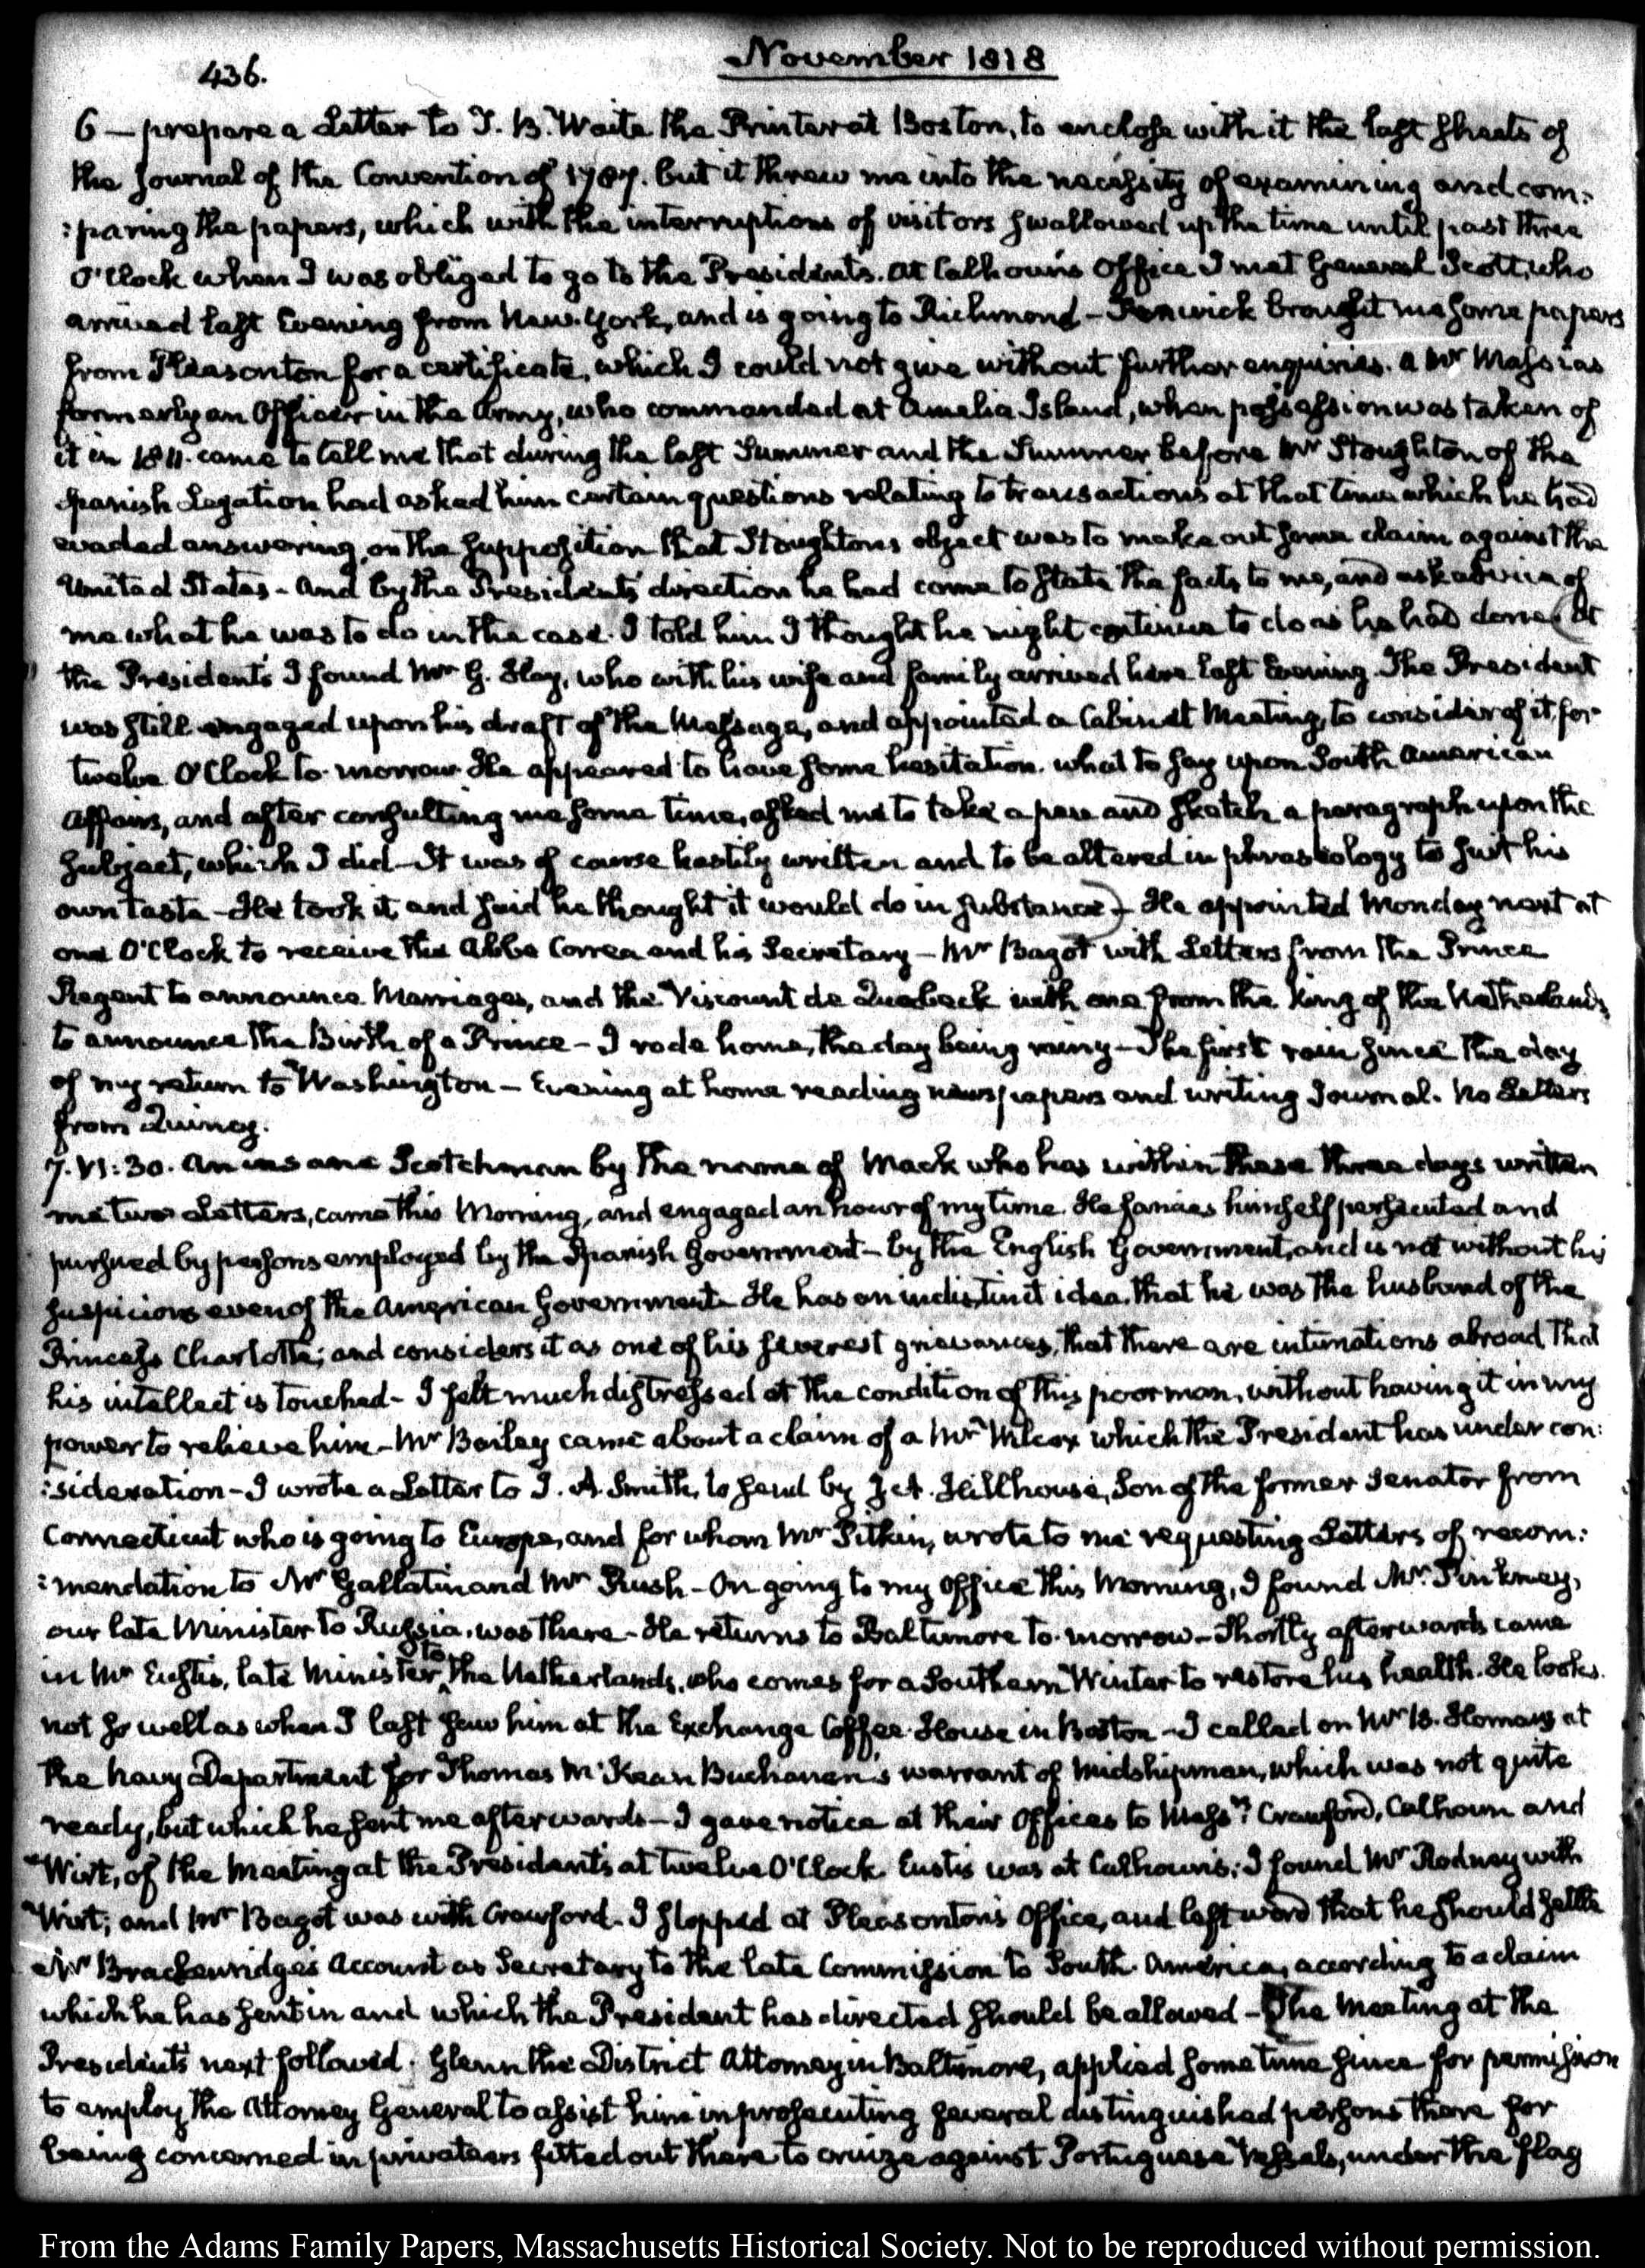 436.
November 1818
6 — prepare a Letter to T. B. Waite the Printer at Boston, to enclose with it the last sheets of
the Journal of the Convention of 1787. but it threw me into the necessity of examining and com:
:paring the papers, which with the interruptions of visitors swallowed up the time until past three
O'Clock when I was obliged to go to the Presidents. At Calhoun's Office I met General Scott, who
arrived last Evening from New-York, and is going to Richmond — Fenwick brought me some papers
from Pleasonton for a certificate, which I could not give without further enquiries. A Mr Massias
formerly an Officer in the Army, who commanded at Amelia Island, when possession was taken of
it in 1811. came to tell me that during the last Summer and the Summer before Mr Stoughton of the
Spanish Legation had asked him certain questions relating to transactions at that time which he had
evaded answering, on the supposition that Stoughtons object was to make out some claim against the
United States — And by the Presidents direction he had come to state the facts to me, and ask advice of
me what he was to do in the case. I told him I thought he might continue to do as he had done. (At
the President's I found Mr G. Hay, who with his wife and family arrived here last Evening. The President
was still engaged upon his draft of the Message, and appointed a Cabinet Meeting, to consider of it, for
twelve O'Clock to-morrow. He appeared to have some hesitation what to say upon South American
Affairs, and after consulting me some time, asked me to take a pen and sketch a paragraph upon the
subject, which I did — It was of course hastily written and to be altered in phraseology to suit his
own taste — He took it, and said he thought it would do in substance) — He appointed Monday next at
one O'Clock to receive the Abbe Correa and his Secretary — Mr Bagot with Letters from the Prince
Regent to announce Marriages, and the Viscount de Quabeck with one from the King of the Netherlands,
to announce the Birth of a Prince — I rode home, the day being rainy — The first rain since the day
of my return to Washington — Evening at home reading newspapers and writing Journal. No Letters
from Quincy.
7. VI:30. An insane Scotchman by the name of Mack who has within these three days written
me two Letters, came this Morning, and engaged an hour of my time. He fancies himself persecuted and
pursued by persons employed by the Spanish Government — by the English Government, and is not without his
suspicions even of the American Government. He has an indistinct idea that he was the husband of the
Princess Charlotte; and considers it as one of his severest grievances, that there are intimations abroad that
his intellect is touched — I felt much distressed at the condition of this poor man, without having it in my
power to relieve him — Mr Bailey came about a claim of a Mr Wilcox which the President has under con:
:sideration — I wrote a Letter to J. A. Smith, to send by J. A. Hillhouse, Son of the former Senator from
Connecticut who is going to Europe, and for whom Mr Pitkin, wrote to me requesting Letters of recom:
:mendation to Mr Gallatin and Mr Rush — On going to my Office this Morning, I found Mr. Pinkney,
our late Minister to Russia, was there — He returns to Baltimore to-morrow — Shortly afterwards came
in Mr Eustis, late Minister to the Netherlands, who comes for a Southern Winter to restore his health. He looks
not so well as when I last saw him at the Exchange Coffee-House in Boston — I called on Mr B. Homans at
the Navy Department for Thomas McKean Buchanan's warrant of Midshipman, which was not quite
ready, but which he sent me afterwards — I gave notice at their Offices to Messrs Crawford, Calhoun and
Wirt, of the Meeting at the President's at twelve O'Clock. Eustis was at Calhoun's; I found Mr Rodney with
Wirt; and Mr Bagot was with Crawford. I stopped at Pleasonton's Office, and left word that he should settle
Mr Brackenridge's Account as Secretary to the late Commission to South America, according to a claim
which he has sent in and which the President has directed should be allowed — The Meeting at the
Presidents next followed. Glenn the District Attorney in Baltimore, applied some time since for permission
to employ the Attorney General to assist him in prosecuting several distinguished persons there for
being concerned in privateers fitted out there to cruize against Portuguese Vessels, under the flag
From the Adams Family Papers, Massachusetts Historical Society. Not to be reproduced without permission.